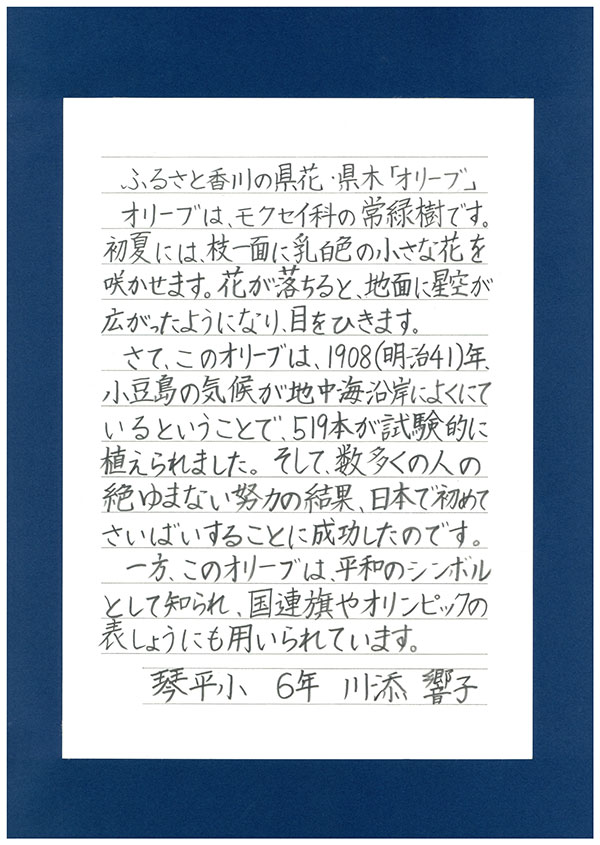 ふるさと香川の県花・県木「オリーブ」
オリーブは、モクセイ科の常緑樹です。
初夏には、枝一面に乳白色の小さな花を
咲かせます。花が落ちると、地面に星空が
広がったようになり、目をひきます。
さて、このオリーブは、1908(明治41)年、
小豆島の気候が地中海沿岸によくにて
いるということで、519本が試験的に
植えられました。そして、数多くの人の
絶ゆまない努力の結果、日本で初めて
さいばいすることに成功したのです。
一方、このオリーブは、平和のシンボル
として知られ、国連旗やオリンピックの
表しょうにも用いられています。
琴平小 6年 川添 響子